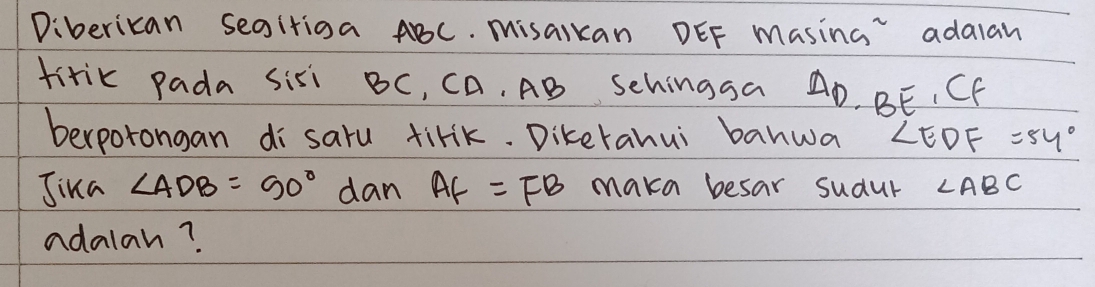 Diberikan segitiga ABC. Misalkan DEF masing~ adalah
titik pada sisi BC, CA, AB sehingga AD, BE, CF
berpotongan di satu titik. Diketahui bahwa ∠EDF = 54°
Jika ∠ADB = 90° dan AF = FB maka besar sudut ∠ABC
adalah?